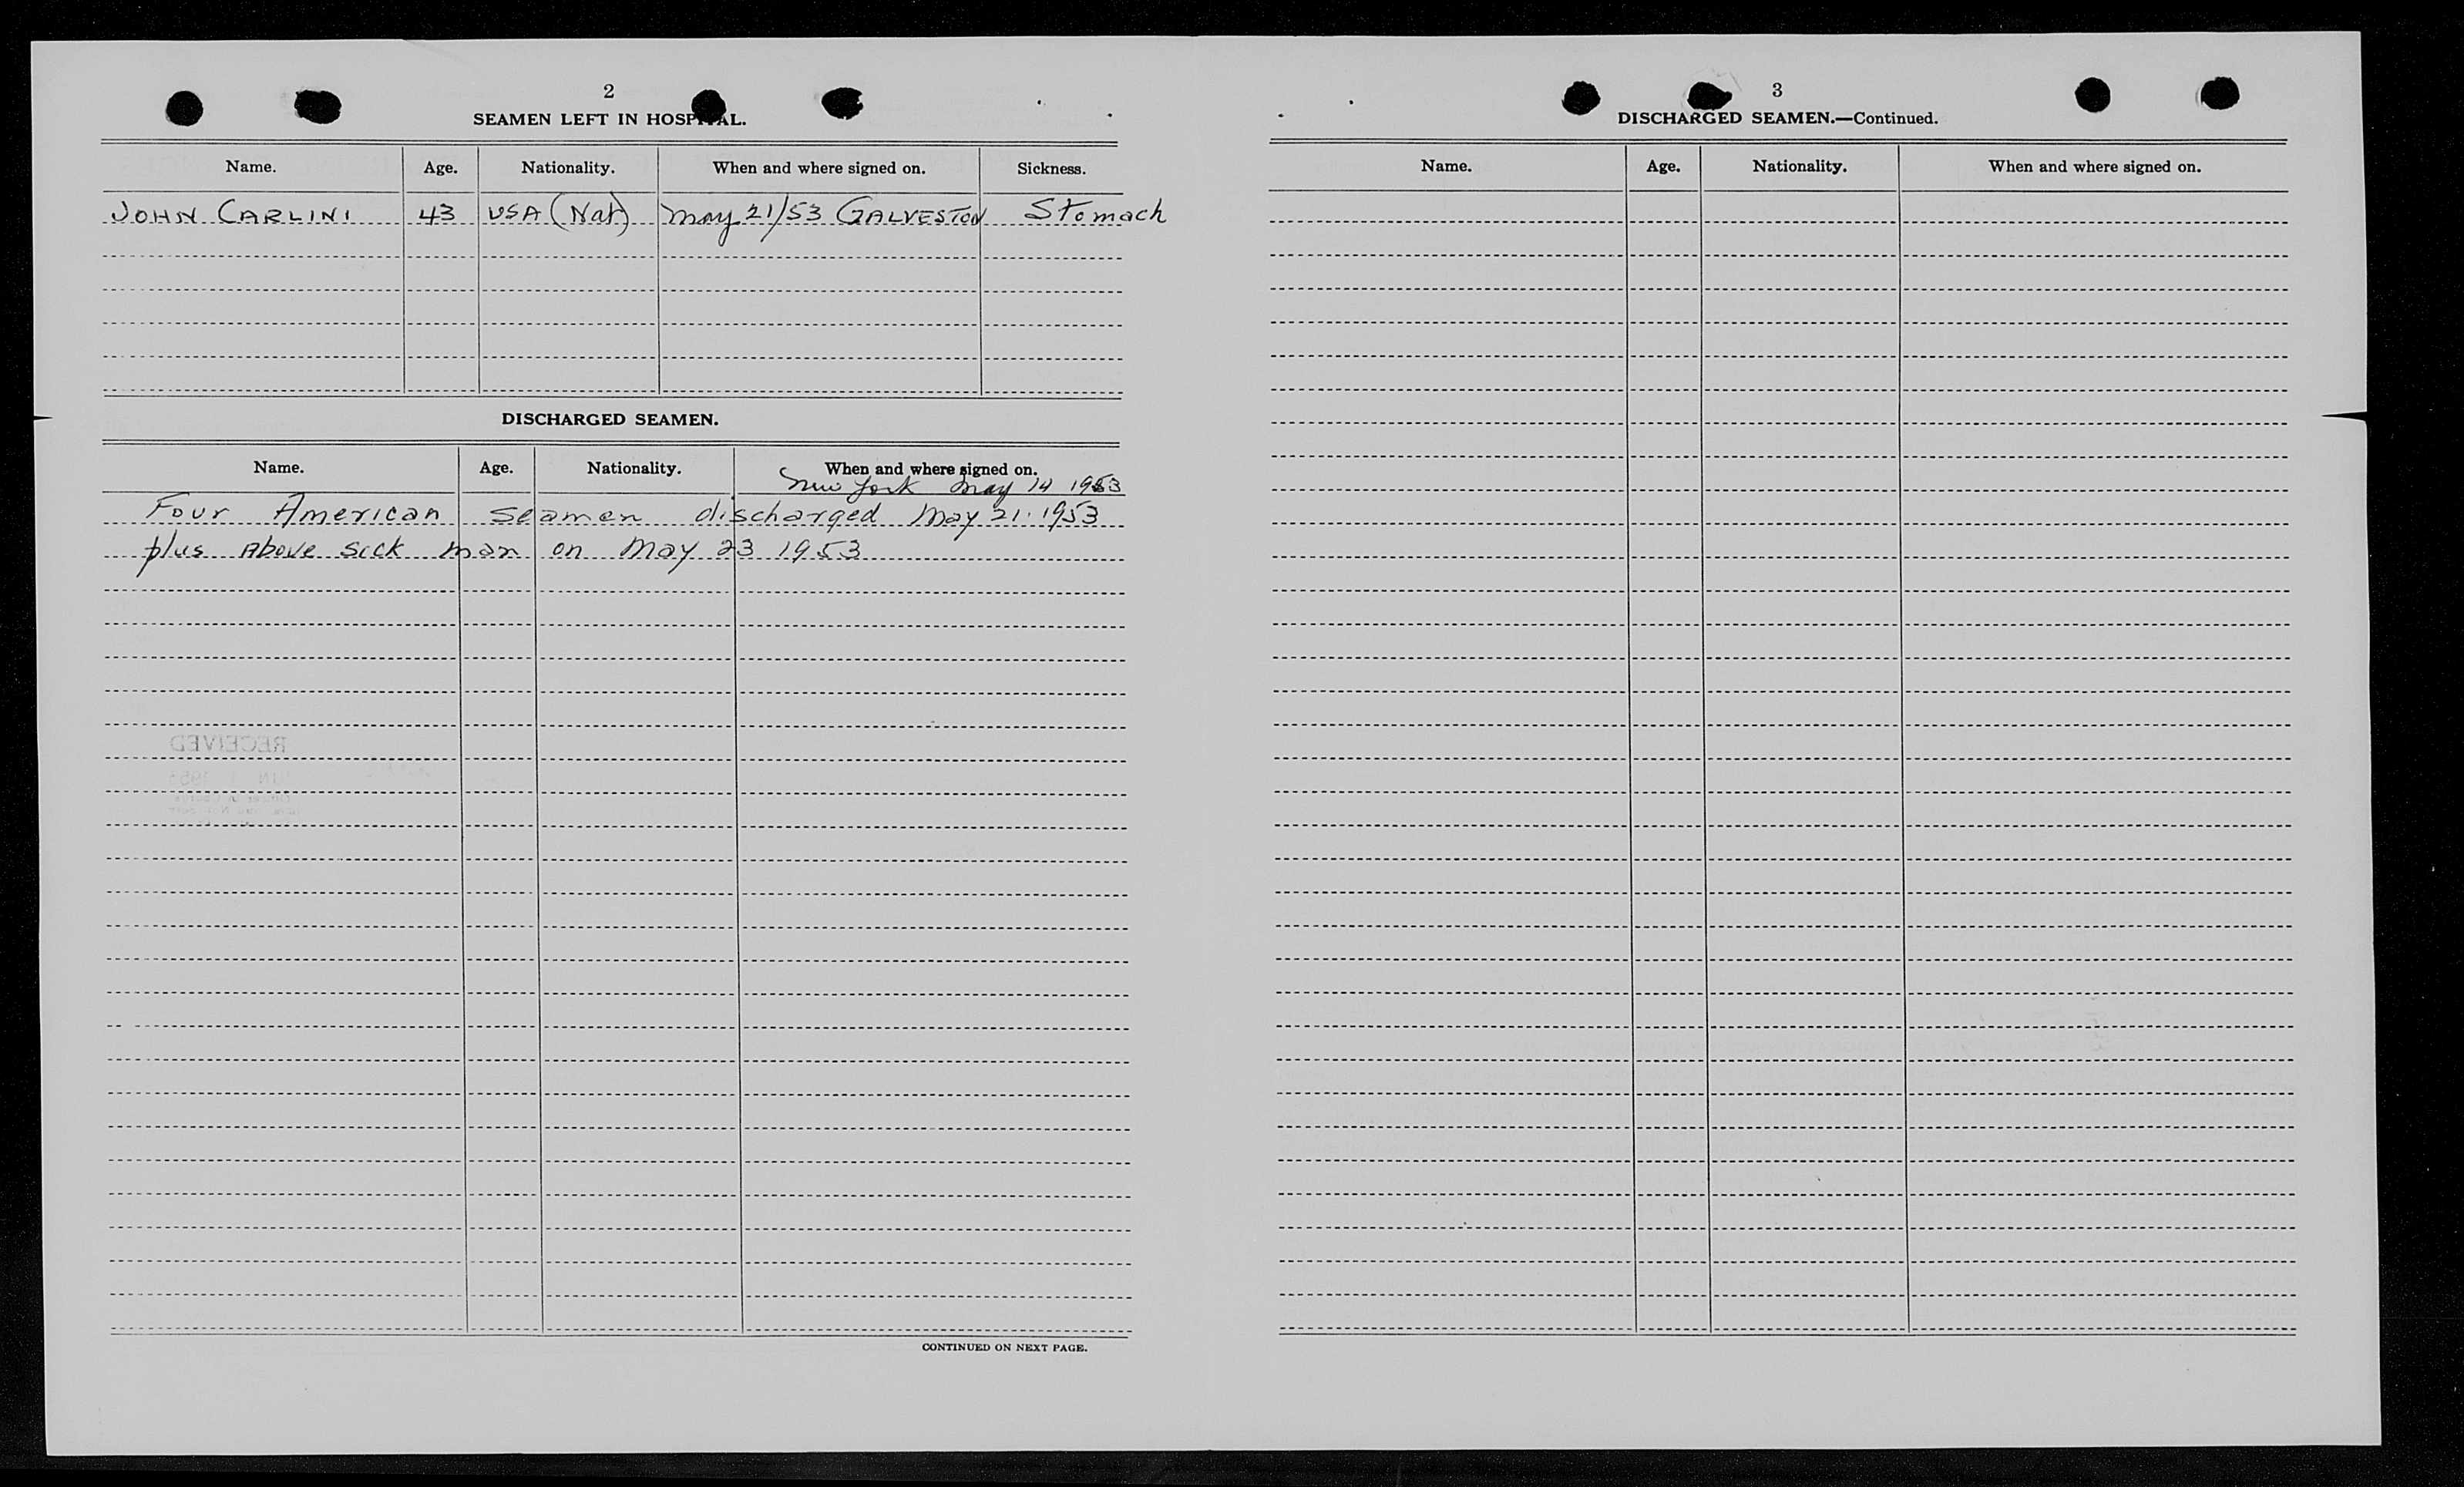 2
SEAMEN LEFT IN HOSPITAL.
Name. Age. Nationality. When and where signed on. Sickness.
JOHN CARLINI 43 USA (Nat) May 21/53 GALVESTON Stomach
DISCHARGED SEAMEN.
Name. Age. Nationality. When and where signed on.
New York May 14 1953
Four American seamen discharged May 21. 1953
plus Above sick man on May 23 1953
RECEIVED
CONTINUED ON NEXT PAGE.
3
DISCHARGED SEAMEN.—Continued.
Name. Age. Nationality. When and where signed on.